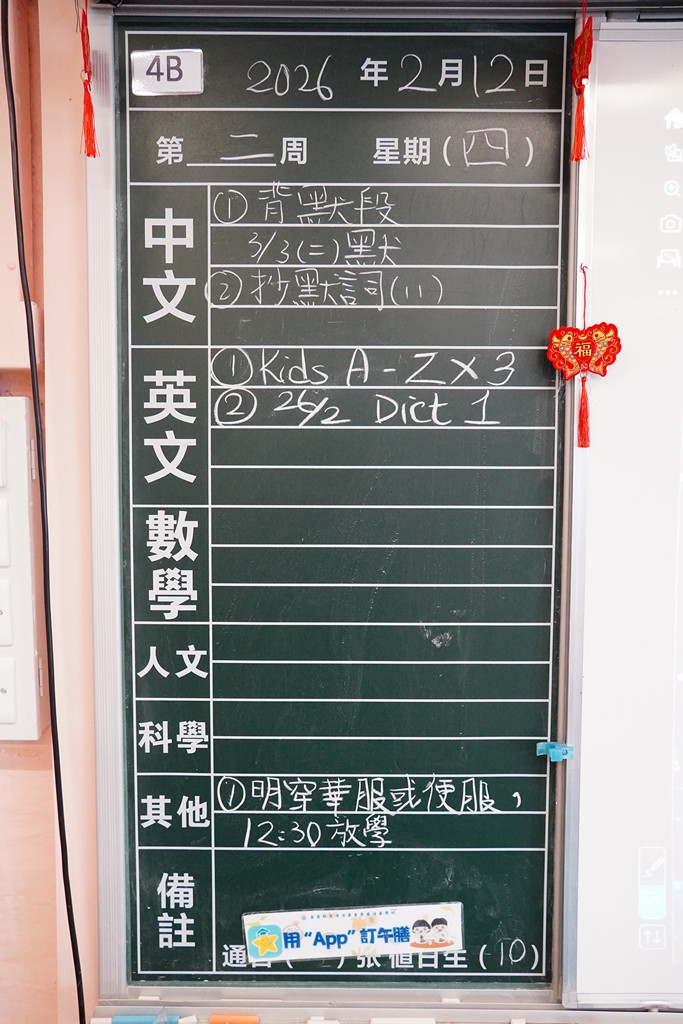 4B
2026年2月12日
第二周 星期(四)
中文
① 背默段
3/3(二)默
② 抄默詞(11)
英文
① Kids A-Z X 3
② 26/2 Dict 1
數學
人文
科學
其他
① 明穿華服或便服，
12:30放學
備註
用“App”訂午膳
通告( )張 值日生(10)
福